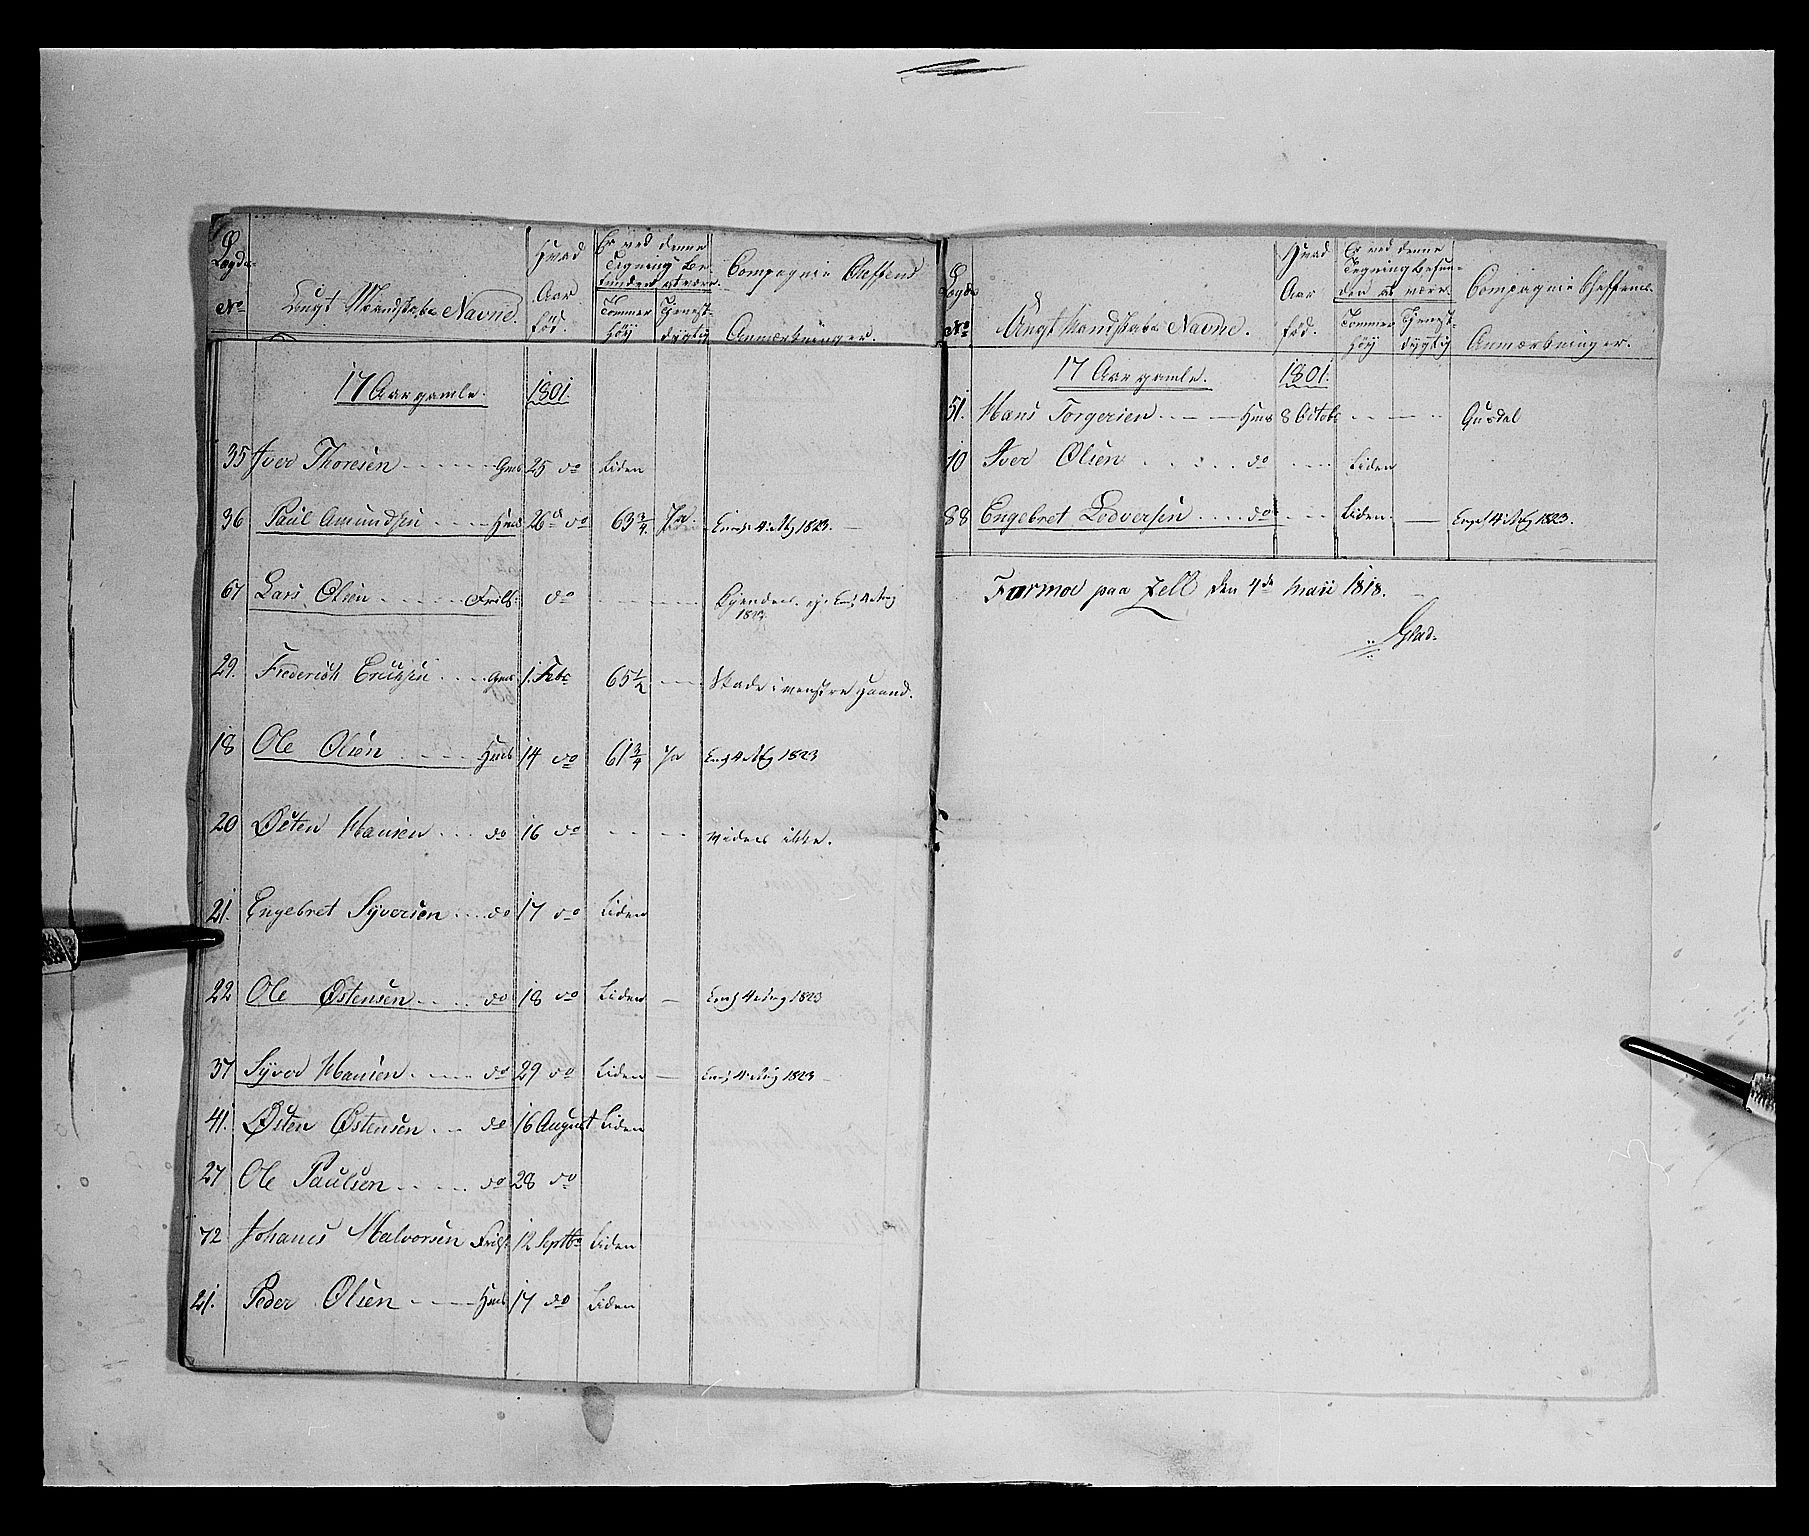 Lægds No
Ungt Mandskabs Navne.
Hvad Aar fød.
Er ved denne Tegning befunden at være.
Tommer høy
Tjenestdygtig
Compagnie Cheffens Anmærkninger.
17 Aar gamle. 1801.
35 Iver Thoresen Gms 25 do Liden
36 Paul Amundsen Hms 26 do 63 3/4 Ja 4 Aug 1823.
67 Lars Olsen do 4 Aug 1823
29. Frederich Ericksen Gms 1. Febr 65 1/2 Skade i venstre Haand.
18 Ole Olsen Hms 14 do 61 3/4 Ja 4 Aug 1823
20 Østen Hansen do 16 do vides ikke.
21. Engebret Syversen do 17 do Liden
22 Ole Østensen do 18 do Liden 4 Aug 1823
37 Syver Hansen do 29 do Liden 4 Aug 1823
41. Østen Østensen do 16 August Liden
27 Ole Paulsen do 28 do
72 Johanes Halvorsen 12 Septbr Liden
21. Peder Olsen Hms 17 do Liden
Lægds No
Ungt Mandskabs Navne.
Hvad Aar fød.
Er ved denne Tegning befunden at være.
Tommer høy
Tjenestdygtig
Compagnie Cheffens Anmærkninger.
17 Aar gamle. 1801.
51. Hans Torgersen Hms 8 Octobr Gusdal
10 Iver Olsen do Liden
88 Engebret Lodversen do Liden 4 Aug 1823.
Formoe paa Zell den 4de Maii 1818.
Glad.